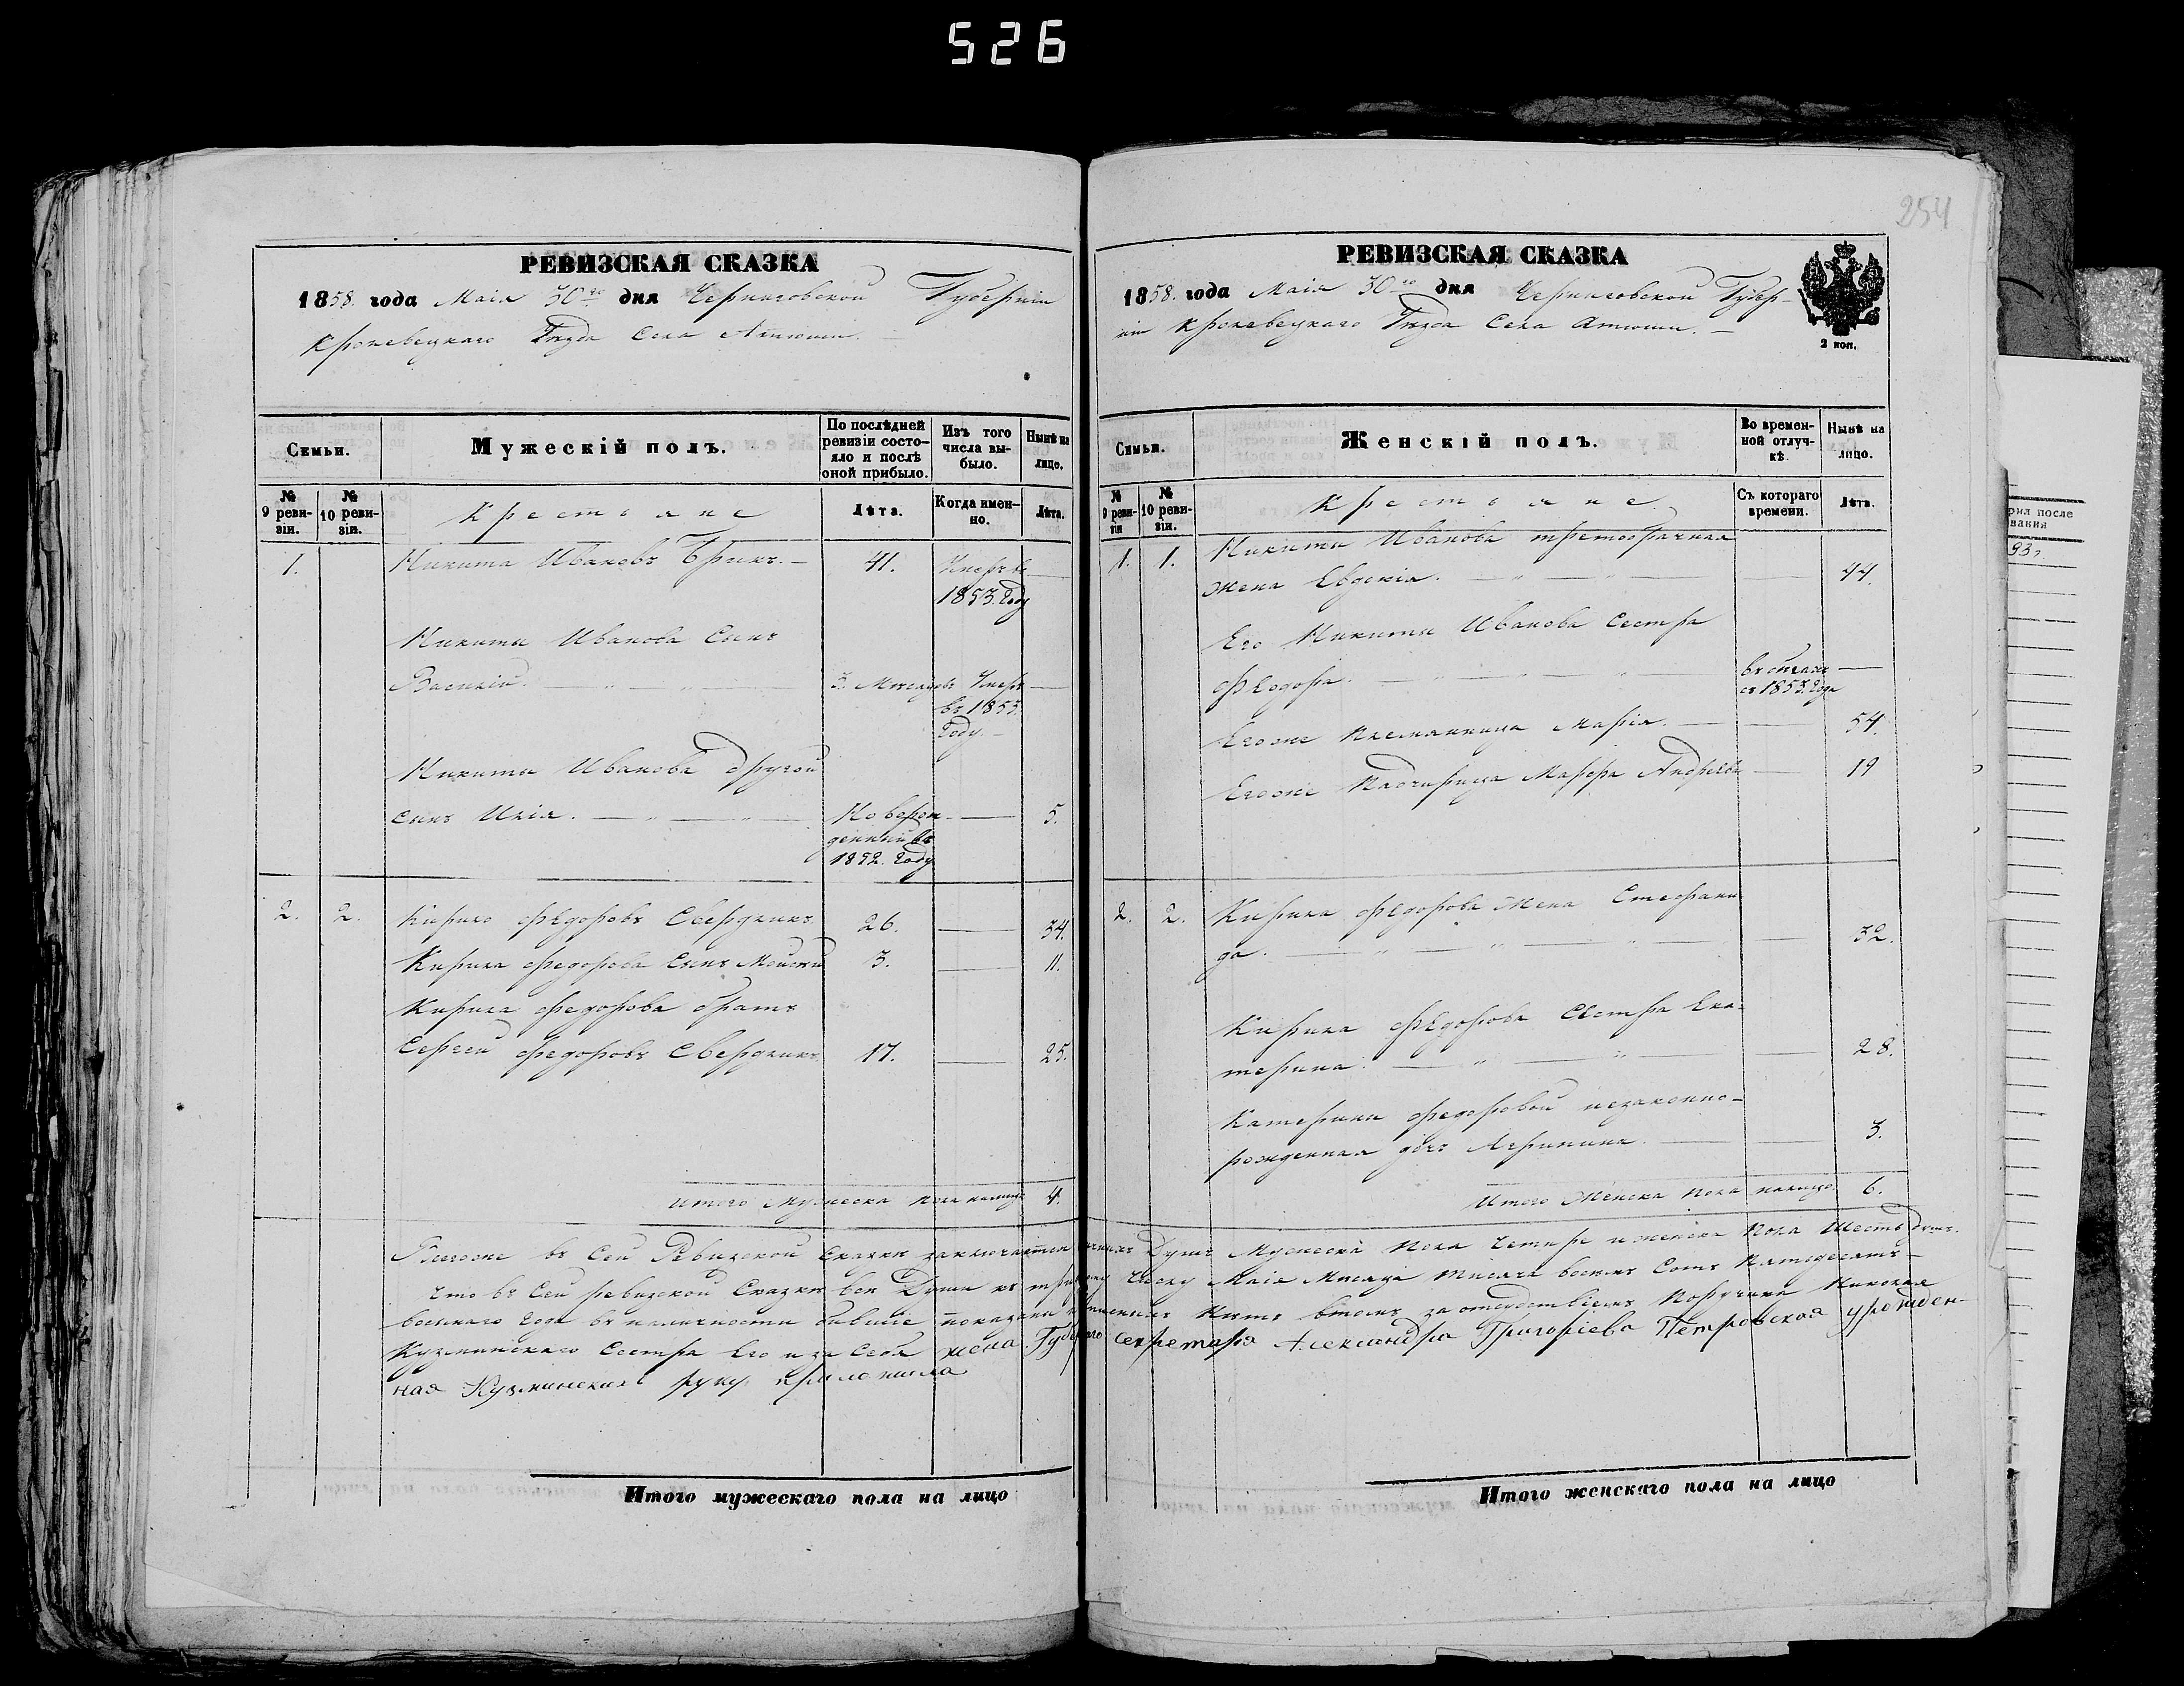 526
254
РЕВИЗСКАЯ СКАЗКА
1858. года Маія 30го дня Черниговской Губерніи
Кролевецкаго Уѣзда Села Атюши.
Семьи.
Мужескій полъ.
По послѣдней ревизіи состояло и послѣ оной прибыло.
Изъ того числа выбыло.
Нынѣ на лицо.
№ 9 ревизіи.
№ 10 ревизіи.
Крестьяне
Лѣта.
Когда именно.
Лѣта.
1. Никита Ивановъ 41.
1853. Году
Никиты Иванова Сынъ
Василій. 3. Месяцовъ Умеръ
въ 1853.
Году
Никиты Иванова другой
сынъ Илія. Новорож 5.
денный въ
1852. Году
2. 2. Кирило Федоровъ Свердликъ 26. 34.
Кирила Федорова Сынъ 3. 11.
Кирила Федорова братъ
Сергей Федоровъ Свердликъ 17. 25.
Итого мужеска пола налицо 4.
РЕВИЗСКАЯ СКАЗКА
1858. года Маія 30го дня Черниговской Губер-
ніи Кролевецкаго Уѣзда Села Атюши.
2 коп.
Семьи.
Женскій полъ.
Во временной отлучкѣ.
Нынѣ на лицо.
№ 9 ревизіи
№ 10 ревизіи.
Крестьяне.
Съ котораго времени.
Лѣта.
1. 1. Никиты Иванова третобрачная
жена Евдокія. 44.
Его Никиты Иванова Сестра
Федора. въ бегахъ
съ 1853. Года
Егоже племянница Марія. 54.
Егоже Падчирица Марфа 19
2. 2. Кирила Федорова Жена Стефани
да. 32.
Кирила Федорова Сестра Ека-
терина. 28.
Катерины Федоровой незаконно-
рожденная дочь Агрипина. 3.
Итого Женска пола налицо. 6.
Всегоже въ Сей Ревизской Сказки заключается Душъ Мужеска пола четыре и женска пола Шесть душъ.
Что въ Сей ревизской Сказке все Души къ числу Маія Месяца тисяча восемъ Сотъ Пятьдесятъ
восьмаго года въ наличности бывшіе показаны за отсудствіемъ Поручика Николая
Кузминскаго Сестра Его и за Себя жена Секретаря Александра Григоріева Петровская урожден-
ная Кузминскихъ руку приложила
Итого мужескаго пола на лицо
Итого женскаго пола на лицо